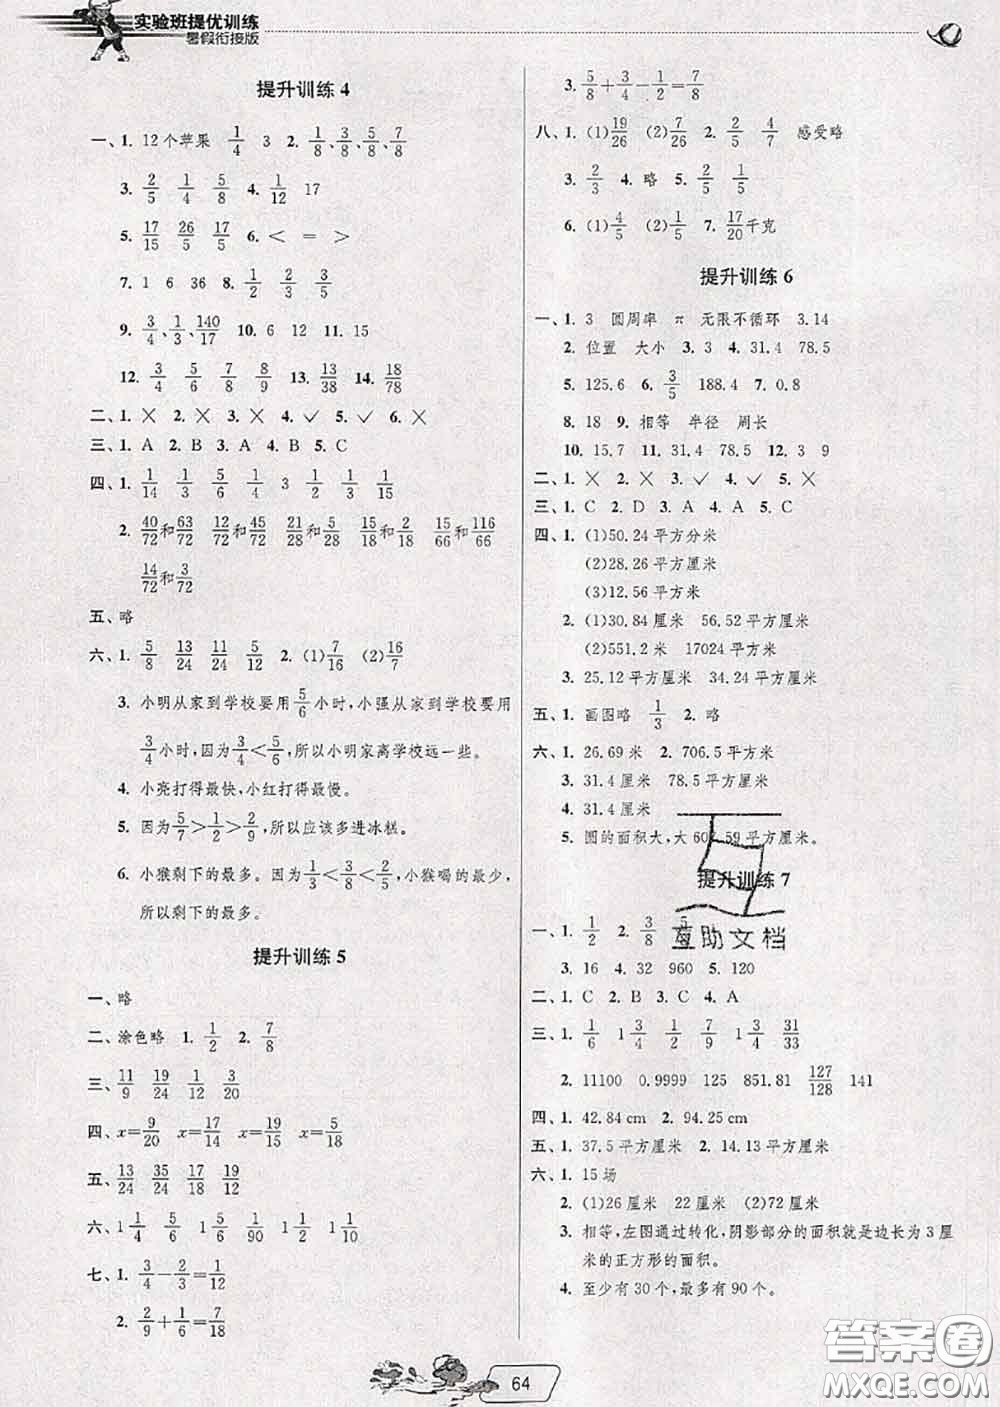 实验班提优训练
暑假衔接版
提升训练4
一、1. 12个苹果 1/4 3 2. 1/8、3/8、5/8、7/8
3. 2/5 1/4 5/8 4. 1/12 17
5. 17/15 26/5 17/5 6. < = >
7. 1 6 36 8. 1/2 2/3 3/5
9. 3/4、1/3、140/17 10. 6 12 11. 15
12. 3/4 5/6 7/8 8/9 13. 13/38 14. 18/78
二、1. × 2. × 3. × 4. ✓ 5. ✓ 6. ×
三、1. A 2. B 3. A 4. B 5. C
四、1. 1/14 1/3 5/6 1/4 3 1/2 1/3 1/15
2. 40/72和63/72 12/72和45/72 21/28和5/28 15/18和2/18 15/66和116/66
14/72和3/72
五、略
六、1. 5/8 13/24 11/24 5/12 2. (1)7/16 (2)16/7
3. 小明从家到学校要用5/6小时,小强从家到学校要用
3/4小时,因为3/4<5/6,所以小明家离学校远一些。
4. 小亮打得最快,小红打得最慢。
5. 因为5/7>1/2>2/9,所以应该多进冰糕。
6. 小猴剩下的最多。因为1/3<3/8<2/5,小猴喝的最少,
所以剩下的最多。
提升训练5
一、略
二、涂色略 1. 1/2 2. 7/8
三、11/9 19/24 1/2 3/20
四、x=9/20 x=17/14 x=19/15 x=5/18
五、13/24 35/24 17/18 19/12
六、1 1/4 5/6 1 5/6 1/90 1 1/4 1/10
七、1. 3/4-2/3=1/12
2. 2/9+1/6=7/18
3. 5/8+3/4-1/2=7/8
八、1. (1)19/26 (2)7/26 2. 2/5 4/7 感受略
3. 2/3 4. 略 5. 2/5 1/5
6. (1)4/5 (2)1/5 7. 17/20千克
提升训练6
一、1. 3 圆周率 π 无限不循环 3.14
2. 位置 大小 3. 3 4. 31.4 78.5
5. 125.6 6. 3/5 188.4 7. 0.8
8. 18 9. 相等 半径 周长
10. 15.7 11. 31.4 78.5 12. 3 9
二、1. × 2. × 3. ✓ 4. ✓ 5. ×
三、1. C 2. D 3. A 4. A 5. C
四、1. (1)50.24平方分米
(2)28.26平方厘米
(3)12.56平方米
2. (1)30.84厘米 56.52平方厘米
(2)551.2米 17024平方米
3. 25.12平方厘米 34.24平方厘米
五、1. 画图略 1/3 2. 略
六、1. 26.69米 2. 706.5平方米
3. 31.4厘米 78.5平方厘米
4. 31.4厘米
5. 圆的面积大,大60 .59平方厘米。
提升训练7
互助文档
一、1. 1/2 2. 3/8
3. 16 4. 32 960 5. 120
二、1. C 2. B 3. C 4. A
三、1. 1/6 1 3/4 1/2 7/9 1 3/4 31/33
2. 11100 0.9999 125 851.81 127/128 141
四、1. 42.84 cm 2. 94.25 cm
五、1. 37.5平方厘米 2. 14.13平方厘米
六、1. 15场
2. (1)26厘米 22厘米 (2)72厘米
3. 相等,左图通过转化,阴影部分的面积就是边长为3厘
米的正方形的面积。
4. 至少有30个,最多有90个。
64
答案圈
MXQE.COM